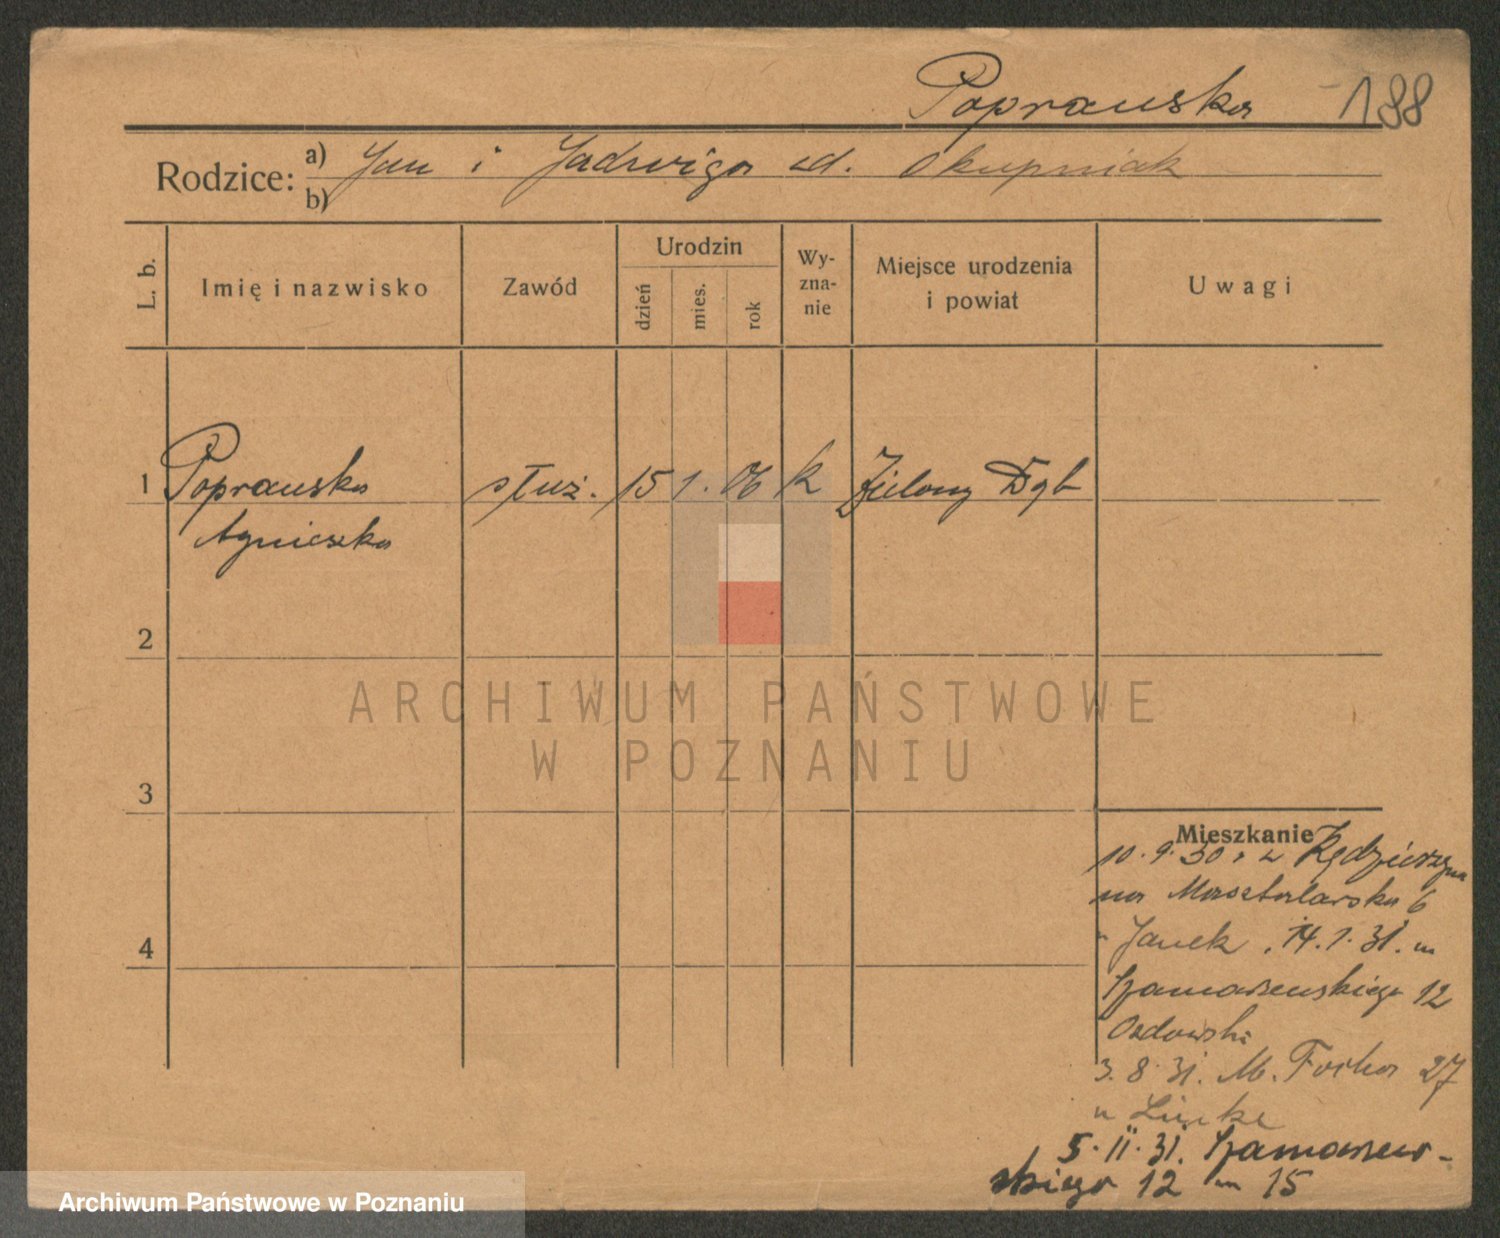 Poprawska 188
Rodzice: a) Jan i Jadwiga zd. Okupniak
b)
L. b.
Imię i nazwisko
Zawód
Urodzin
dzień
mies.
rok
Wy-
zna-
nie
Miejsce urodzenia
i powiat
Uwagi
1 Poprawska służ. 15 1. 06 k Zielony Dąb
Agnieszka
2
3
4
ARCHIWUM PAŃSTWOWE
W POZNANIU
Mieszkanie
10. 9. 30 z Kędzierzyna
na Masztalarska 6
Janek 14. 1. 31. u
Szamarzewskiego 12
3. 8. 31. M. Focha 27
u
5. 11. 31. Szamarzew-
skiego 12 m 15
Archiwum Państwowe w Poznaniu